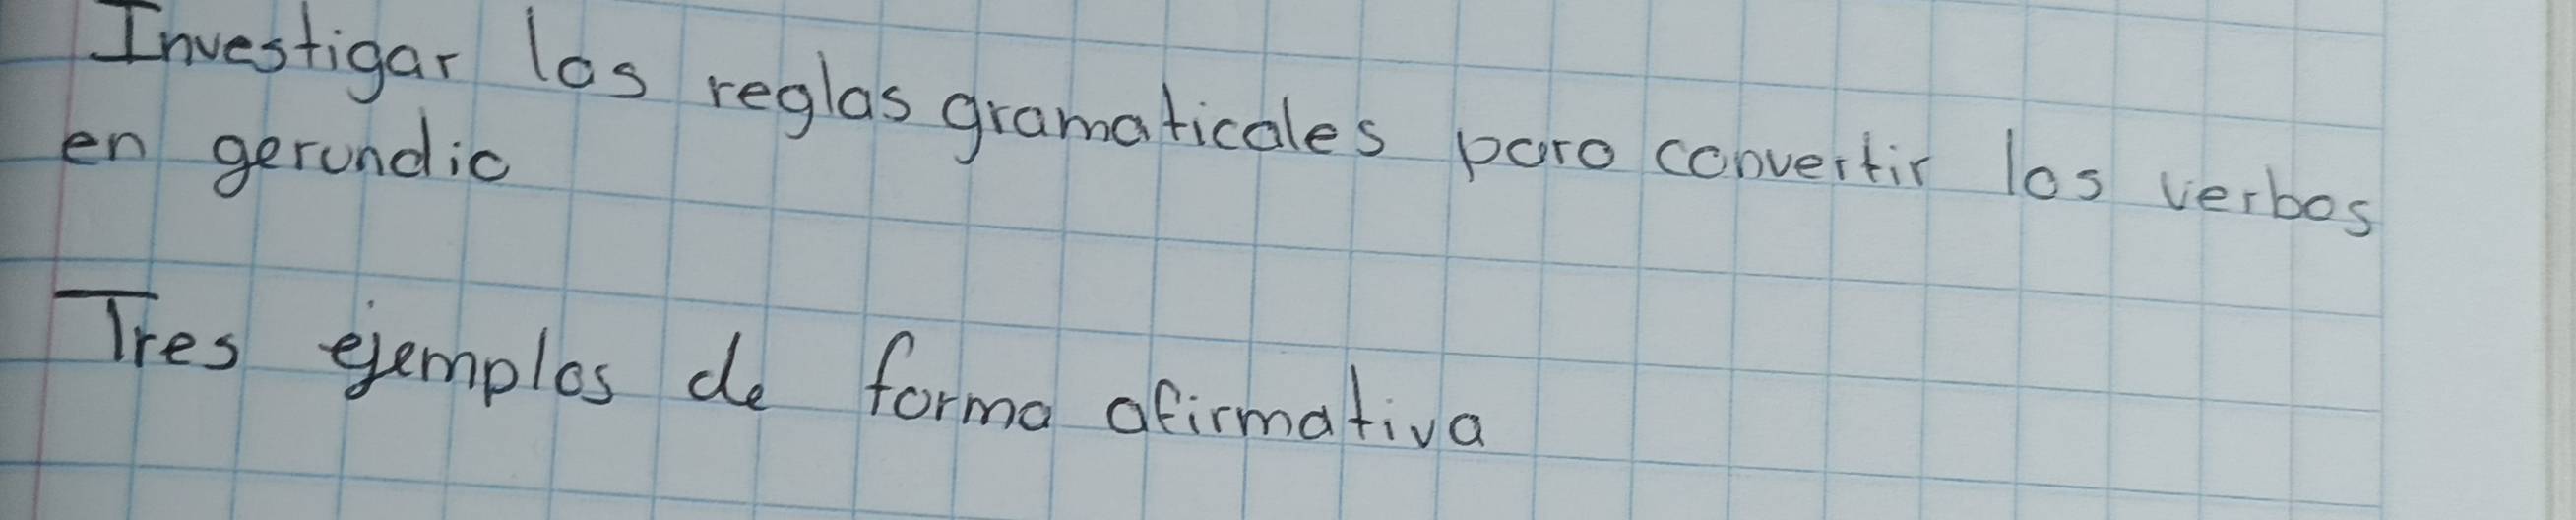 Investigar las reglas gramaticales para convertir los verbos
en gerundio
Tres ejemplos de forma afirmativa